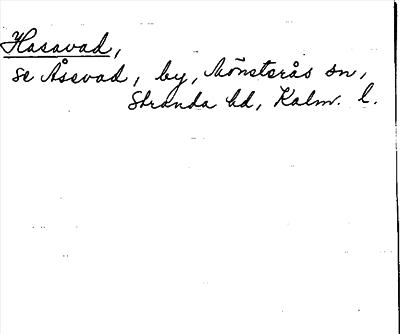 Hasavad,
se Åsevad, by, Mönsterås sn,
Stranda hd, Kalm. l.